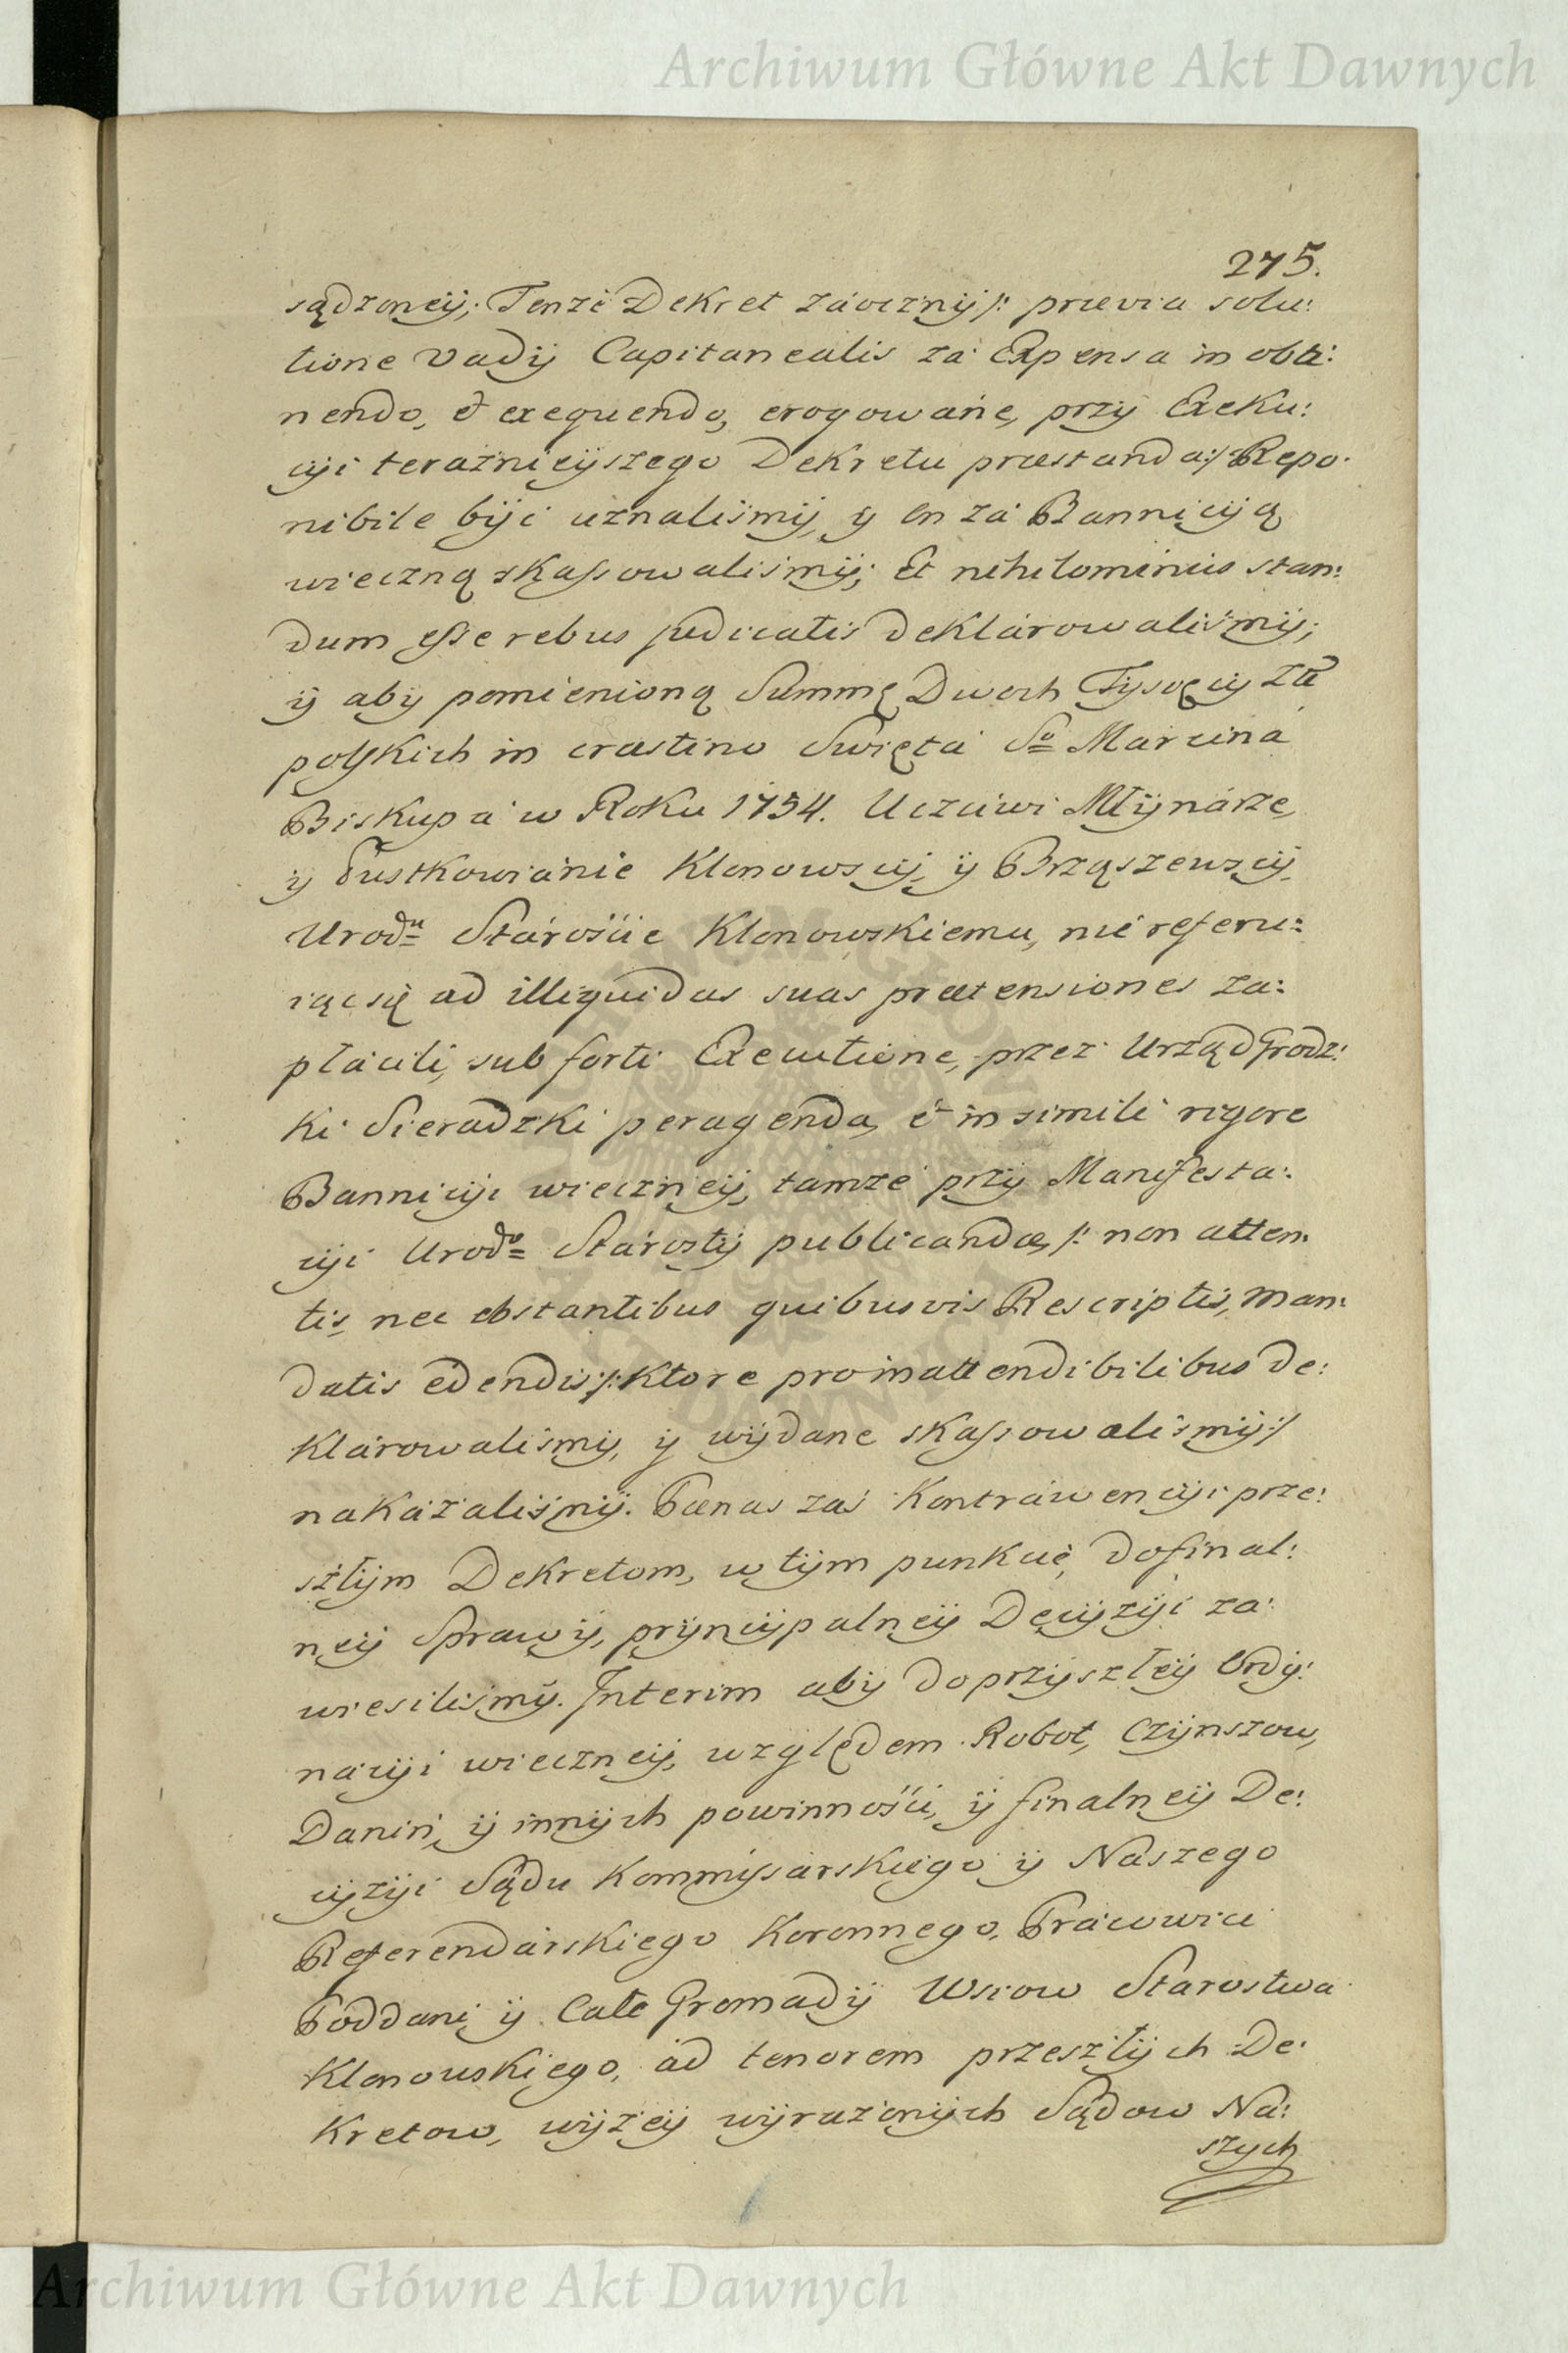 Archiwum Główne Akt Dawnych
275.
sądzoneÿ; Tenże Dekret záocznÿ /: prævia solu:
tione Vadÿ Capitanealis zá Expensa in obti:
nendo, et exequendo, erogowane, przÿ Exeku:
cÿi teraznieÿszego Dekretu præstanda :/ Repo:
nibile bÿc uznalismÿ, ÿ on zá Bannicÿą
wieczną skassowalismÿ; Et nihilominus stan:
dum esse rebus judicatis deklárowalismÿ;
ÿ aby pomienioną Summę Dwoch Tysięcÿ Złł
polskich in crastino Swięta So Marcina
Biskupá w Roku 1754. Uczciwi Młÿnárze,
ÿ Pustkowianie Klonowscÿ, ÿ Brząszewscÿ,
Urodu Stárośćie Klonowskiemu, nie referu:
iąc się ad illiquidas suas prætensiones za:
płácili, sub forti Executione, przez Urząd Grodz:
ki Sieradzki peragenda, et in simili rigore
Bannicÿi wieczneÿ, tamże przÿ Manifesta:
cÿi Urodo Stárosty publicandæ, /: non atten:
tis, nec obstantibus quibusvis Rescriptis, Man:
datis edendis, /: Ktore pro inattendibilibus de:
klárowalismÿ, ÿ wÿdane skassowalismÿ :/
nakazalismÿ. Pænas zaś Kontráwencÿi prze:
szłÿm Dekretom, w tÿm punkcie, do final:
neÿ Sprawÿ, prÿncÿpalneÿ Decÿzÿi za:
wiesilismÿ. Interim abÿ do przÿszłeÿ Ordÿ:
nácÿi wieczneÿ, względem Robot, Czÿnszow,
Danin, ÿ innÿch powinności, ÿ finalneÿ De:
cÿzÿi Sądu Kommissarskiego ÿ Nászego
Referendárskiego Koronnego, Prácowici
Poddani ÿ Całe Gromadÿ Wsiow Starostwa
Klonowskiego, ad tenorem przeszłÿch De:
kretow, wÿżeÿ wÿrażonÿch Sądow Na:
szych
Archiwum Główne Akt Dawnych